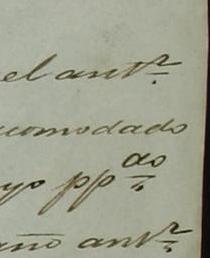 el antr.
comodado
yo ppdo.
año antr.